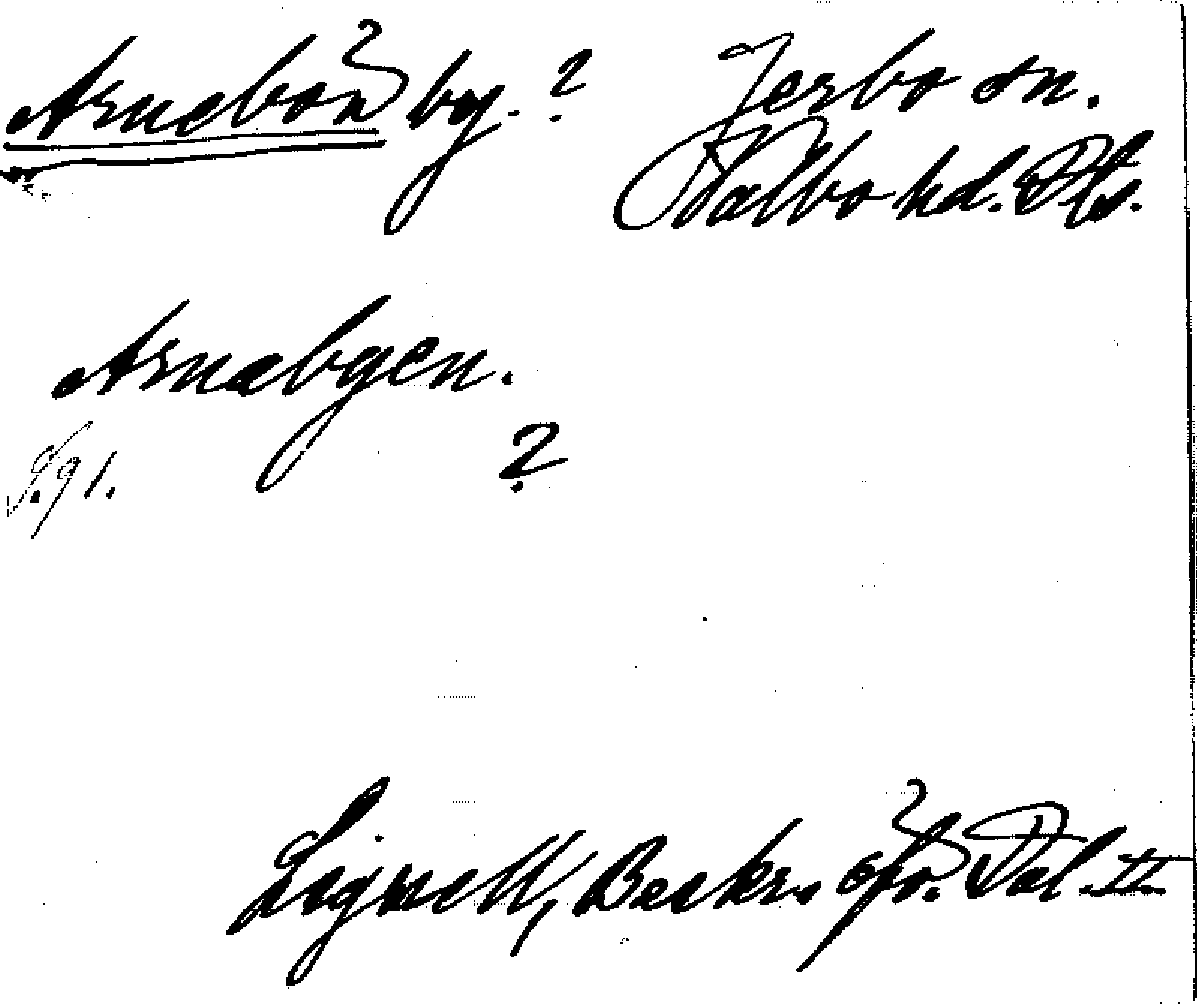 Arnebön by. ? Jerbo sn.
Valbo hd. Dls.
Arnäbgen.
S. 91. ?
Lignell, Beskr. öfv. Dal. II.